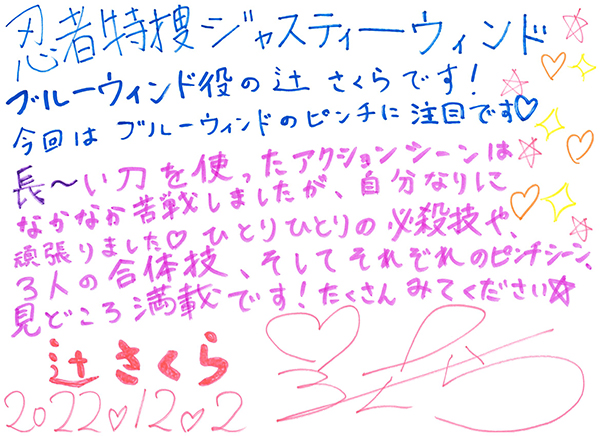 忍者特捜ジャスティーウィンド
ブルーウィンド役の辻 さくらです!
今回は ブルーウィンドのピンチに注目です♡
長〜い刀を使ったアクションシーンは
なかなか苦戦しましたが、自分なりに
頑張りました♡ ひとりひとりの必殺技や、
3人の合体技、そしてそれぞれのピンチシーン、
見どころ満載です!たくさんみてください☆
辻さくら
2022♡12♡2